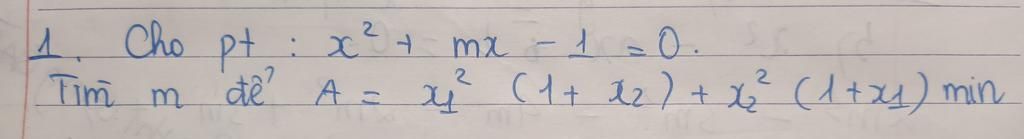 1. Cho pt : x² + mx - 1 = 0.
Tìm m để A = x₁² (1 + x₂) + x₂² (1+x₁) min